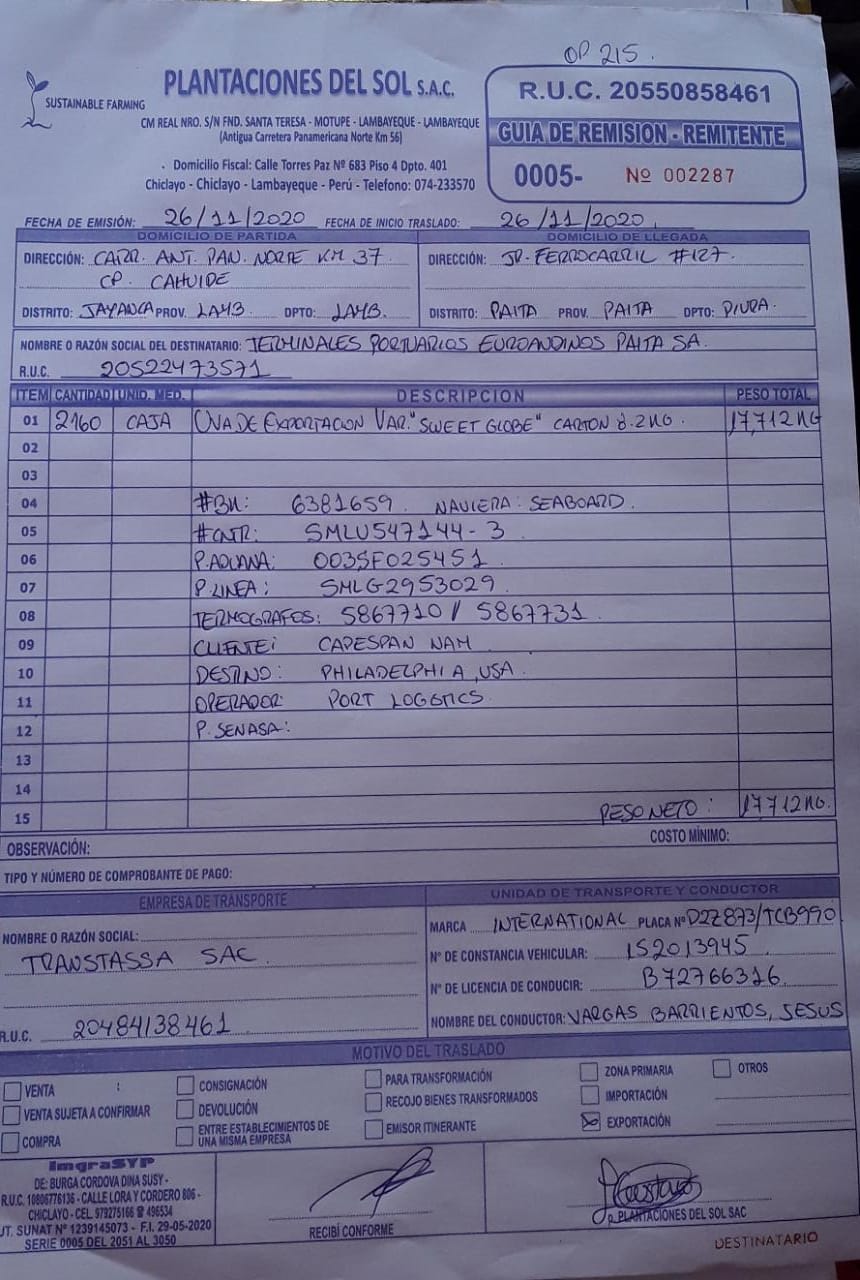 OP 215.
SUSTAINABLE FARMING
PLANTACIONES DEL SOL S.A.C.
CM REAL NRO. S/N FND. SANTA TERESA - MOTUPE - LAMBAYEQUE - LAMBAYEQUE
(Antigua Carretera Panamericana Norte Km 56)
Domicilio Fiscal: Calle Torres Paz Nº 683 Piso 4 Dpto. 401
Chiclayo - Chiclayo - Lambayeque - Perú - Telefono: 074-233570
R.U.C. 20550858461
GUIA DE REMISION - REMITENTE
0005- Nº 002287
FECHA DE EMISIÓN: 26/11/2020 FECHA DE INICIO TRASLADO: 26/11/2020
DOMICILIO DE PARTIDA
DIRECCIÓN: CARR. ANT. PAN. NORTE KM 37
CP. CAHUIDE
DISTRITO: JAYANCA PROV. LAMB. DPTO: LAMB.
DOMICILIO DE LLEGADA
DIRECCIÓN: JR. FERROCARRIL #127.
DISTRITO: PAITA PROV. PAITA DPTO: PIURA.
NOMBRE O RAZÓN SOCIAL DEL DESTINATARIO: TERMINALES PORTUARIOS EUROANDINOS PAITA SA.
R.U.C. 20522473571
ITEM CANTIDAD UNID. MED. DESCRIPCION PESO TOTAL
01 2160 CAJA UVA DE EXPORTACION VAR. "SWEET GLOBE" CARTON 8.2 KG. 17,712 KG
02
03
04 #BK: 6381659 NAVIERA: SEABOARD.
05 #CNTR: SMLU547144-3
06 P.ADUANA: 003SF025451
07 P.LINEA: SMLG2953029
08 TERMOGRAFOS: 5867710 / 5867731
09 CLIENTE: CAPESPAN NAM
10 DESTINO: PHILADELPHIA, USA.
11 OPERADOR: PORT LOGSTICS.
12 P. SENASA:
13
14
15 PESO NETO: 17,712 KG.
OBSERVACIÓN:
COSTO MÍNIMO:
TIPO Y NÚMERO DE COMPROBANTE DE PAGO:
EMPRESA DE TRANSPORTE
NOMBRE O RAZÓN SOCIAL:
TRANSTASSA SAC.
R.U.C. 20484138461
UNIDAD DE TRANSPORTE Y CONDUCTOR
MARCA INTERNATIONAL PLACA Nº D2Z873/TCB990
Nº DE CONSTANCIA VEHICULAR: 152013945
Nº DE LICENCIA DE CONDUCIR: B72766316
NOMBRE DEL CONDUCTOR: VARGAS BARRIENTOS, JESUS
MOTIVO DEL TRASLADO
VENTA
VENTA SUJETA A CONFIRMAR
COMPRA
CONSIGNACIÓN
DEVOLUCIÓN
ENTRE ESTABLECIMIENTOS DE
UNA MISMA EMPRESA
PARA TRANSFORMACIÓN
RECOJO BIENES TRANSFORMADOS
EMISOR ITINERANTE
ZONA PRIMARIA
IMPORTACIÓN
EXPORTACIÓN
OTROS
ImgraSYP
DE: BURGA CORDOVA DINA SUSY -
R.U.C. 10806776136 - CALLE LORA Y CORDERO 806 -
CHICLAYO - CEL. 979275166 ☎ 496534
UT. SUNAT Nº 1239145073 - F.I. 29-05-2020
SERIE 0005 DEL 2051 AL 3050
RECIBÍ CONFORME
p. PLANTACIONES DEL SOL SAC
DESTINATARIO